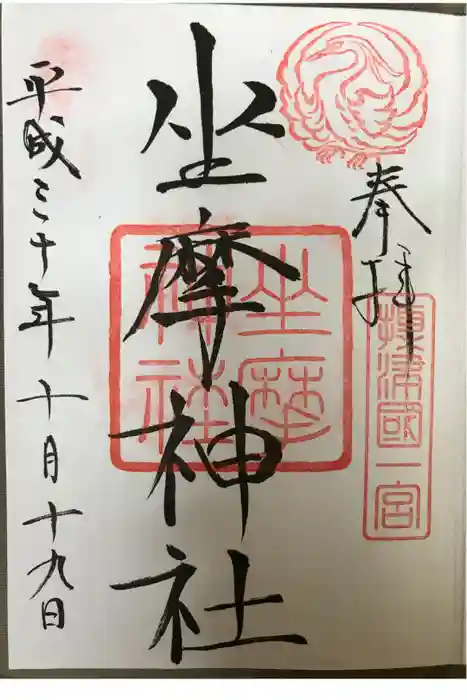 奉拝
摂津國一宮
坐摩神社
坐摩神社
平成三十年十月十九日